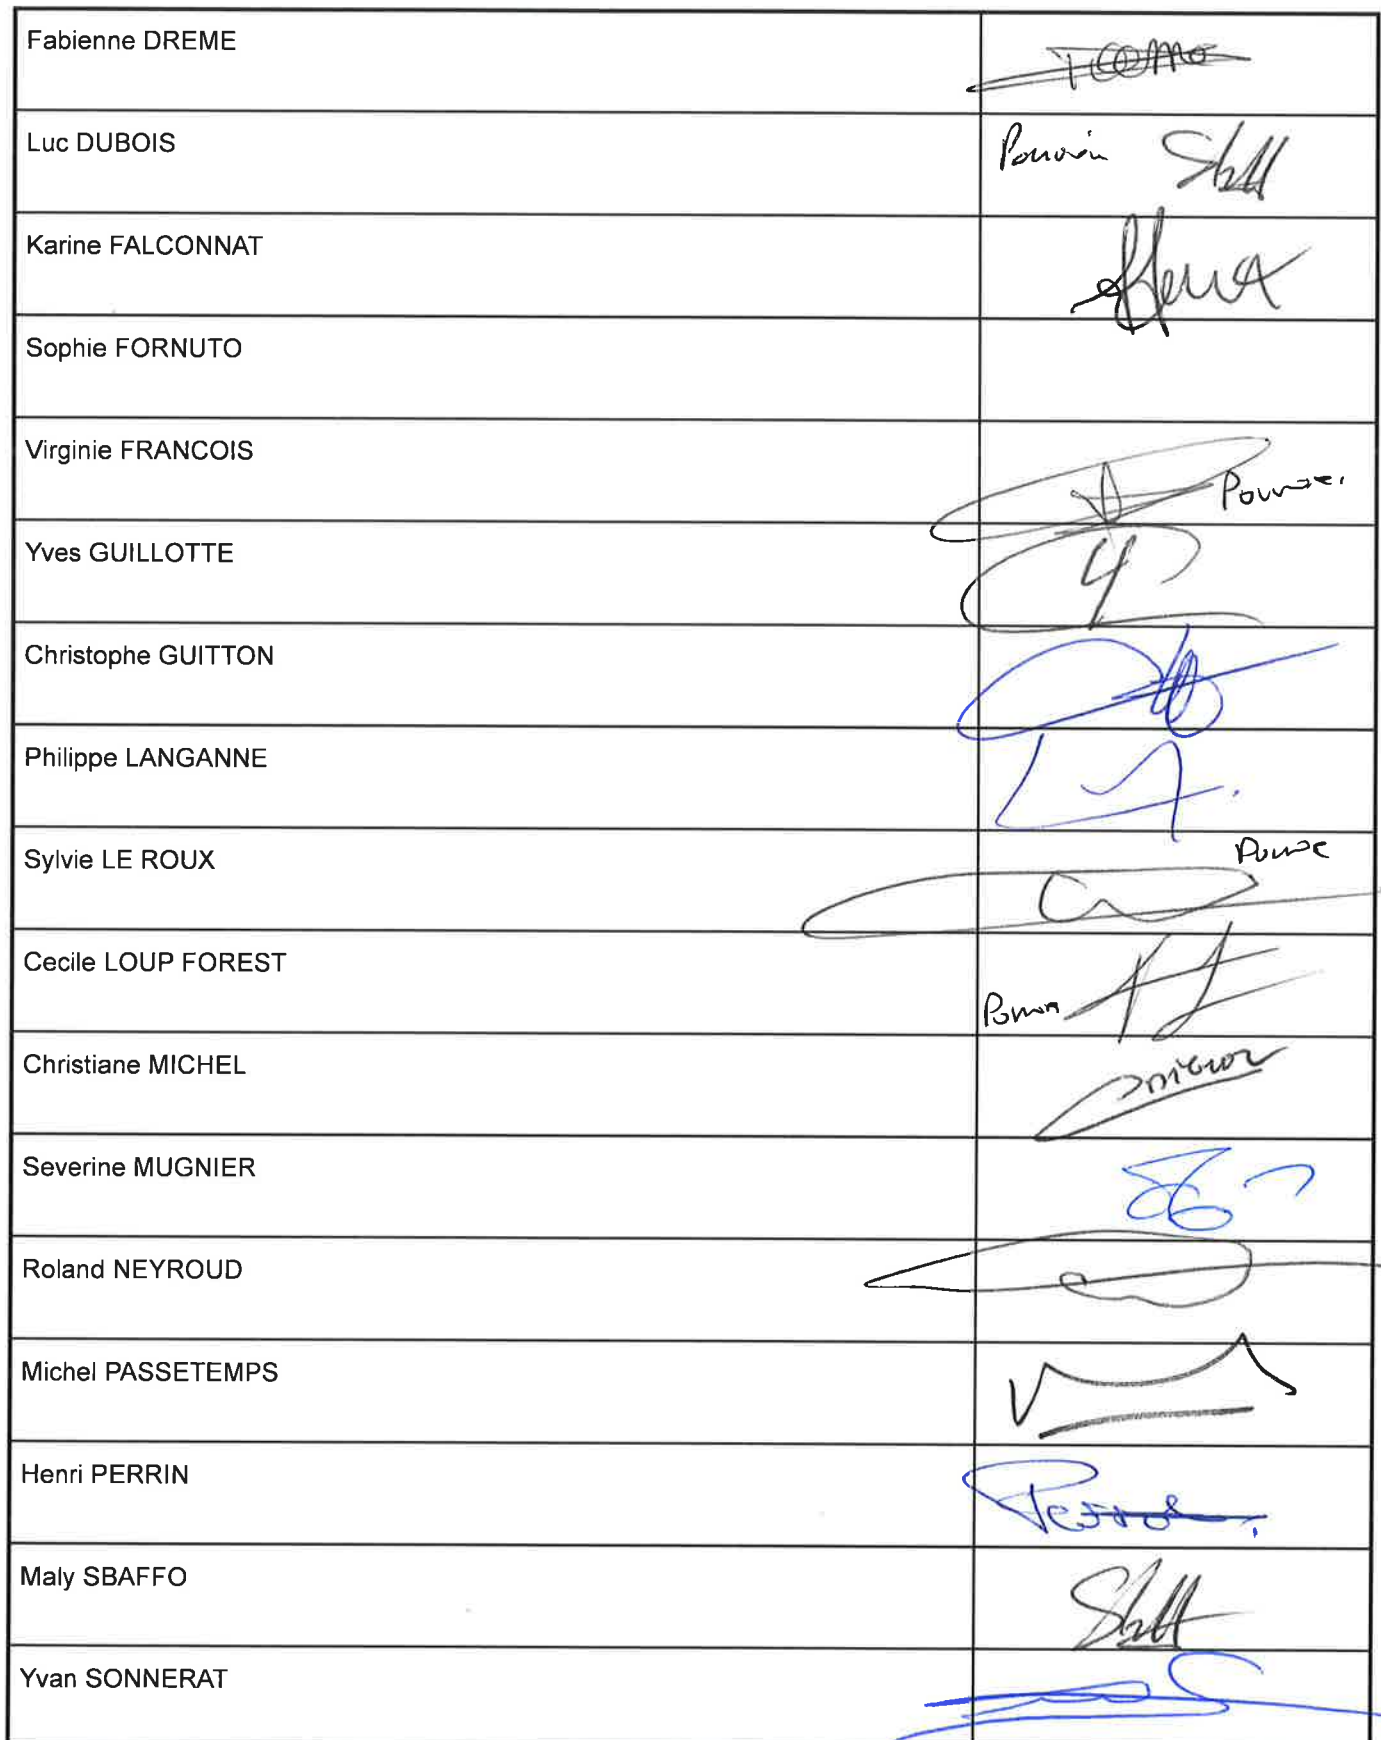 Fabienne DREME
Luc DUBOIS
Pouvoir
Karine FALCONNAT
Sophie FORNUTO
Virginie FRANCOIS
Yves GUILLOTTE
Christophe GUITTON
Philippe LANGANNE
Sylvie LE ROUX
Cecile LOUP FOREST
Christiane MICHEL
Severine MUGNIER
Roland NEYROUD
Michel PASSETEMPS
Henri PERRIN
Maly SBAFFO
Yvan SONNERAT